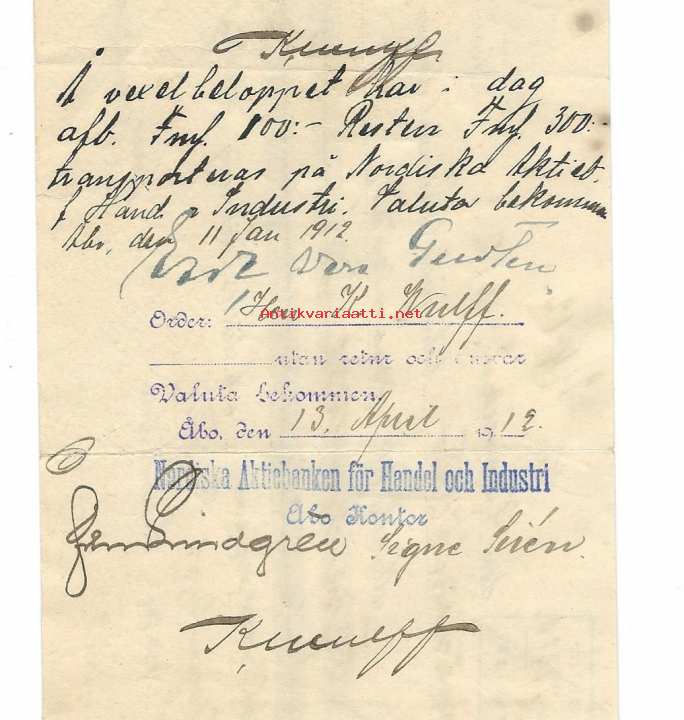 K. Wulff
Å vexelbeloppet har i dag
afb. Fmf. 100:- Resten Fmf. 300:-
transporteras på Nordiska Aktieb.
f. Hand. o Industri. Valuta bekommen
Åbo, den 11 Jan 1912.
Order: Herr K. Wulff.
antikvariaatti.net
utan retur och ansvar
Valuta bekommen.
Åbo, den 13. April 1912.
Nordiska Aktiebanken för Handel och Industri
Åbo Kontor
Lindgren Signe Sirén.
K. Wulff